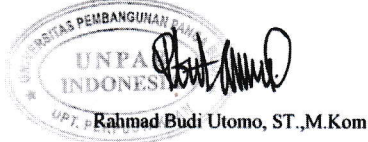 UNIVERSITAS PEMBANGUNAN PANCA
UNPA
INDONESI
UPT. PERPUSTAKAAN
Rahmad Budi Utomo, ST.,M.Kom